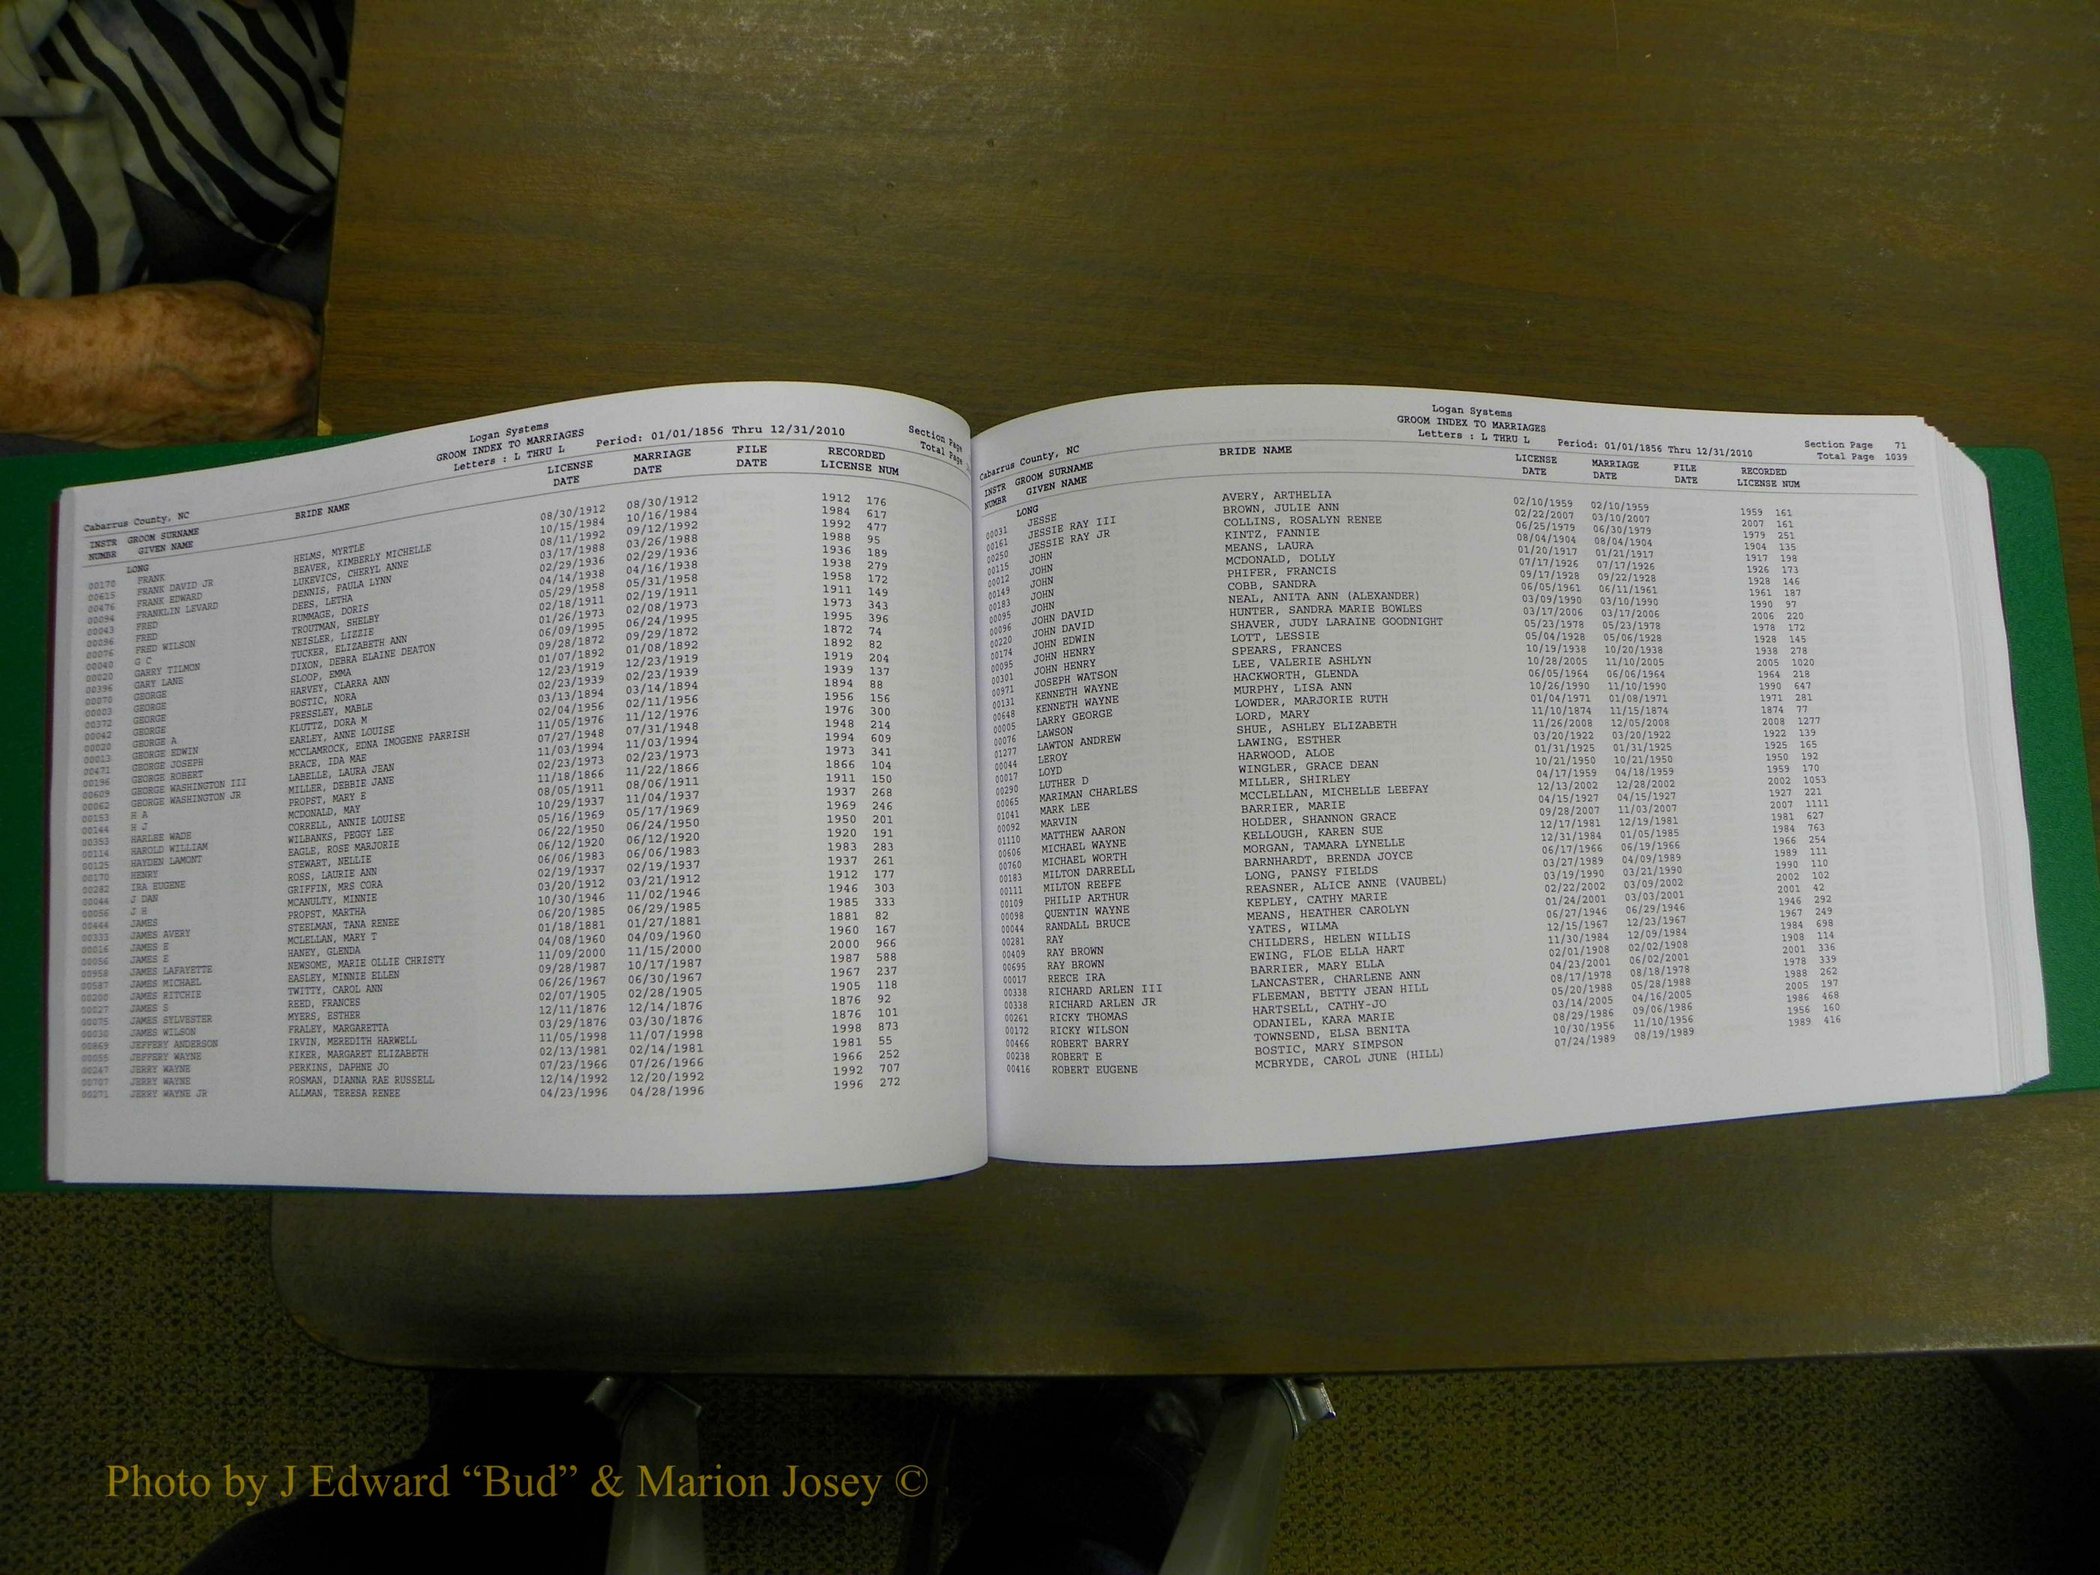 Logan Systems
GROOM INDEX TO MARRIAGES
Letters : L THRU L Period: 01/01/1856 Thru 12/31/2010
Section Page
Total Page
Cabarrus County, NC
INSTR NUMBR GROOM SURNAME GIVEN NAME BRIDE NAME LICENSE DATE MARRIAGE DATE FILE DATE RECORDED LICENSE NUM
LONG
00170 FRANK HELMS, MYRTLE 08/30/1912 08/30/1912 1912 176
00615 FRANK DAVID JR BEAVER, KIMBERLY MICHELLE 10/15/1984 10/16/1984 1984 617
00476 FRANK EDWARD LUKEVICS, CHERYL ANNE 08/11/1992 09/12/1992 1992 477
00094 FRANKLIN LEVARD DENNIS, PAULA LYNN 03/17/1988 03/26/1988 1988 95
00043 FRED DEES, LETHA 02/29/1936 02/29/1936 1936 189
00096 FRED RUMMAGE, DORIS 04/14/1938 04/16/1938 1938 279
00076 FRED WILSON TROUTMAN, SHELBY 05/29/1958 05/31/1958 1958 172
00040 G C NEISLER, LIZZIE 02/18/1911 02/19/1911 1911 149
00020 GARRY TILMON TUCKER, ELIZABETH ANN 01/26/1973 02/08/1973 1973 343
00396 GARY LANE DIXON, DEBRA ELAINE DEATON 06/09/1995 06/24/1995 1995 396
00070 GEORGE SLOOP, EMMA 09/28/1872 09/29/1872 1872 74
00003 GEORGE HARVEY, CLARRA ANN 01/07/1892 01/08/1892 1892 82
00372 GEORGE BOSTIC, NORA 12/23/1919 12/23/1919 1919 204
00042 GEORGE PRESSLEY, MABLE 02/23/1939 02/23/1939 1939 137
00020 GEORGE A KLUTTZ, DORA M 03/13/1894 03/14/1894 1894 88
00013 GEORGE EDWIN EARLEY, ANNE LOUISE 02/04/1956 02/11/1956 1956 156
00471 GEORGE JOSEPH MCCLAMROCK, EDNA IMOGENE PARRISH 11/05/1976 11/12/1976 1976 300
00196 GEORGE ROBERT BRACE, IDA MAE 07/27/1948 07/31/1948 1948 214
00609 GEORGE WASHINGTON III LABELLE, LAURA JEAN 11/03/1994 11/03/1994 1994 609
00062 GEORGE WASHINGTON JR MILLER, DEBBIE JANE 02/23/1973 02/23/1973 1973 341
00153 H A PROPST, MARY E 11/18/1866 11/22/1866 1866 104
00144 H J MCDONALD, MAY 08/05/1911 08/06/1911 1911 150
00353 HARLEE WADE CORRELL, ANNIE LOUISE 10/29/1937 11/04/1937 1937 268
00114 HAROLD WILLIAM WILBANKS, PEGGY LEE 05/16/1969 05/17/1969 1969 246
00125 HAYDEN LAMONT EAGLE, ROSE MARJORIE 06/22/1950 06/24/1950 1950 201
00170 HENRY STEWART, NELLIE 06/12/1920 06/12/1920 1920 191
00282 IRA EUGENE ROSS, LAURIE ANN 06/06/1983 06/06/1983 1983 283
00044 J DAN GRIFFIN, MRS CORA 02/19/1937 02/19/1937 1937 261
00056 J H MCANULTY, MINNIE 03/20/1912 03/21/1912 1912 177
00444 JAMES PROPST, MARTHA 10/30/1946 11/02/1946 1946 303
00333 JAMES AVERY STEELMAN, TANA RENEE 06/20/1985 06/29/1985 1985 333
00016 JAMES E MCLELLAN, MARY T 01/18/1881 01/27/1881 1881 82
00056 JAMES E HANEY, GLENDA 04/08/1960 04/09/1960 1960 167
00958 JAMES LAFAYETTE NEWSOME, MARIE OLLIE CHRISTY 11/09/2000 11/15/2000 2000 966
00587 JAMES MICHAEL EASLEY, MINNIE ELLEN 09/28/1987 10/17/1987 1987 588
00200 JAMES RITCHIE TWITTY, CAROL ANN 06/26/1967 06/30/1967 1967 237
00027 JAMES S REED, FRANCES 02/07/1905 02/28/1905 1905 118
00075 JAMES SYLVESTER MYERS, ESTHER 12/11/1876 12/14/1876 1876 92
00030 JAMES WILSON FRALEY, MARGARETTA 03/29/1876 03/30/1876 1876 101
00869 JEFFERY ANDERSON IRVIN, MEREDITH HARWELL 11/05/1998 11/07/1998 1998 873
00055 JEFFERY WAYNE KIKER, MARGARET ELIZABETH 02/13/1981 02/14/1981 1981 55
00247 JERRY WAYNE PERKINS, DAPHNE JO 07/23/1966 07/26/1966 1966 252
00707 JERRY WAYNE ROSMAN, DIANNA RAE RUSSELL 12/14/1992 12/20/1992 1992 707
00271 JERRY WAYNE JR ALLMAN, TERESA RENEE 04/23/1996 04/28/1996 1996 272
Logan Systems
GROOM INDEX TO MARRIAGES
Letters : L THRU L Period: 01/01/1856 Thru 12/31/2010
Section Page 71
Total Page 1039
Cabarrus County, NC
INSTR NUMBR GROOM SURNAME GIVEN NAME BRIDE NAME LICENSE DATE MARRIAGE DATE FILE DATE RECORDED LICENSE NUM
LONG
00031 JESSE AVERY, ARTHELIA 02/10/1959 02/10/1959 1959 161
00161 JESSIE RAY III BROWN, JULIE ANN 02/22/2007 03/10/2007 2007 161
00250 JESSIE RAY JR COLLINS, ROSALYN RENEE 06/25/1979 06/30/1979 1979 251
00115 JOHN KINTZ, FANNIE 08/04/1904 08/04/1904 1904 135
00012 JOHN MEANS, LAURA 01/20/1917 01/21/1917 1917 198
00149 JOHN MCDONALD, DOLLY 07/17/1926 07/17/1926 1926 173
00183 JOHN PHIFER, FRANCIS 09/17/1928 09/22/1928 1928 146
00095 JOHN COBB, SANDRA 06/05/1961 06/11/1961 1961 187
00096 JOHN DAVID NEAL, ANITA ANN (ALEXANDER) 03/09/1990 03/10/1990 1990 97
00220 JOHN DAVID HUNTER, SANDRA MARIE BOWLES 03/17/2006 03/17/2006 2006 220
00174 JOHN EDWIN SHAVER, JUDY LARAINE GOODNIGHT 05/23/1978 05/23/1978 1978 172
00095 JOHN HENRY LOTT, LESSIE 05/04/1928 05/06/1928 1928 145
00301 JOHN HENRY SPEARS, FRANCES 10/19/1938 10/20/1938 1938 278
00971 JOSEPH WATSON LEE, VALERIE ASHLYN 10/28/2005 11/10/2005 2005 1020
00131 KENNETH WAYNE HACKWORTH, GLENDA 06/05/1964 06/06/1964 1964 218
00648 KENNETH WAYNE MURPHY, LISA ANN 10/26/1990 11/10/1990 1990 647
00005 LARRY GEORGE LOWDER, MARJORIE RUTH 01/04/1971 01/08/1971 1971 281
00076 LAWSON LORD, MARY 11/10/1874 11/15/1874 1874 77
01277 LAWTON ANDREW SHUE, ASHLEY ELIZABETH 11/26/2008 12/05/2008 2008 1277
00044 LEROY LAWING, ESTHER 03/20/1922 03/20/1922 1922 139
00017 LOYD HARWOOD, ALOE 01/31/1925 01/31/1925 1925 165
00290 LUTHER D WINGLER, GRACE DEAN 10/21/1950 10/21/1950 1950 192
00065 MARIMAN CHARLES MILLER, SHIRLEY 04/17/1959 04/18/1959 1959 170
01041 MARK LEE MCCLELLAN, MICHELLE LEEFAY 12/13/2002 12/28/2002 2002 1053
00092 MARVIN BARRIER, MARIE 04/15/1927 04/15/1927 1927 221
01110 MATTHEW AARON HOLDER, SHANNON GRACE 09/28/2007 11/03/2007 2007 1111
00606 MICHAEL WAYNE KELLOUGH, KAREN SUE 12/17/1981 12/19/1981 1981 627
00760 MICHAEL WORTH MORGAN, TAMARA LYNELLE 12/31/1984 01/05/1985 1984 763
00183 MILTON DARRELL BARNHARDT, BRENDA JOYCE 06/17/1966 06/19/1966 1966 254
00111 MILTON REEFE LONG, PANSY FIELDS 03/27/1989 04/09/1989 1989 111
00109 PHILIP ARTHUR REASNER, ALICE ANNE (VAUBEL) 03/19/1990 03/21/1990 1990 110
00098 QUENTIN WAYNE KEPLEY, CATHY MARIE 02/22/2002 03/09/2002 2002 102
00044 RANDALL BRUCE MEANS, HEATHER CAROLYN 01/24/2001 03/03/2001 2001 42
00281 RAY YATES, WILMA 06/27/1946 06/29/1946 1946 292
00409 RAY BROWN CHILDERS, HELEN WILLIS 12/15/1967 12/23/1967 1967 249
00695 RAY BROWN EWING, FLOE ELLA HART 11/30/1984 12/09/1984 1984 698
00017 REECE IRA BARRIER, MARY ELLA 02/01/1908 02/02/1908 1908 114
00338 RICHARD ARLEN III LANCASTER, CHARLENE ANN 04/23/2001 06/02/2001 2001 336
00338 RICHARD ARLEN JR FLEEMAN, BETTY JEAN HILL 08/17/1978 08/18/1978 1978 339
00261 RICKY THOMAS HARTSELL, CATHY-JO 05/20/1988 05/28/1988 1988 262
00172 RICKY WILSON ODANIEL, KARA MARIE 03/14/2005 04/16/2005 2005 197
00466 ROBERT BARRY TOWNSEND, ELSA BENITA 08/29/1986 09/06/1986 1986 468
00238 ROBERT E BOSTIC, MARY SIMPSON 10/30/1956 11/10/1956 1956 160
00416 ROBERT EUGENE MCBRYDE, CAROL JUNE (HILL) 07/24/1989 08/19/1989 1989 416
Photo by J Edward “Bud” & Marion Josey ©